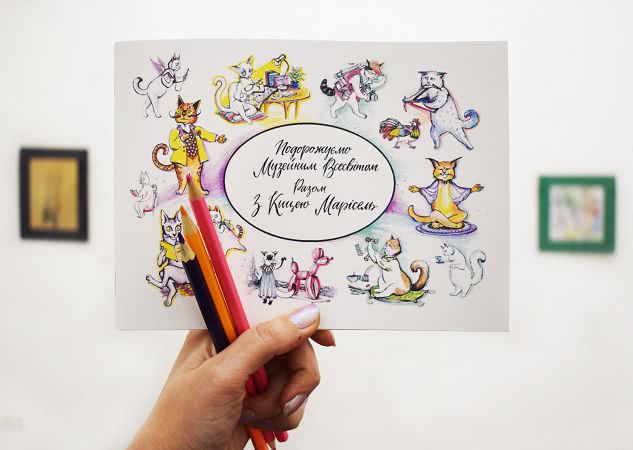 Подорожуємо
Музейним Всесвітом
Разом
З Кицею Марісель